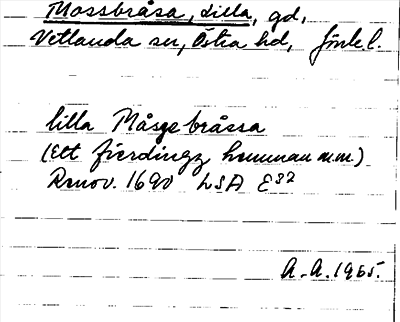 Mossbråsa, Lilla, gd,
Vetlanda sn, Östra hd, Jönk l.
lilla Måsse bråssa
(Ett fierdingz hemman m.m.)
Rmov. 1690 LSA E 32
A. A. 1965.